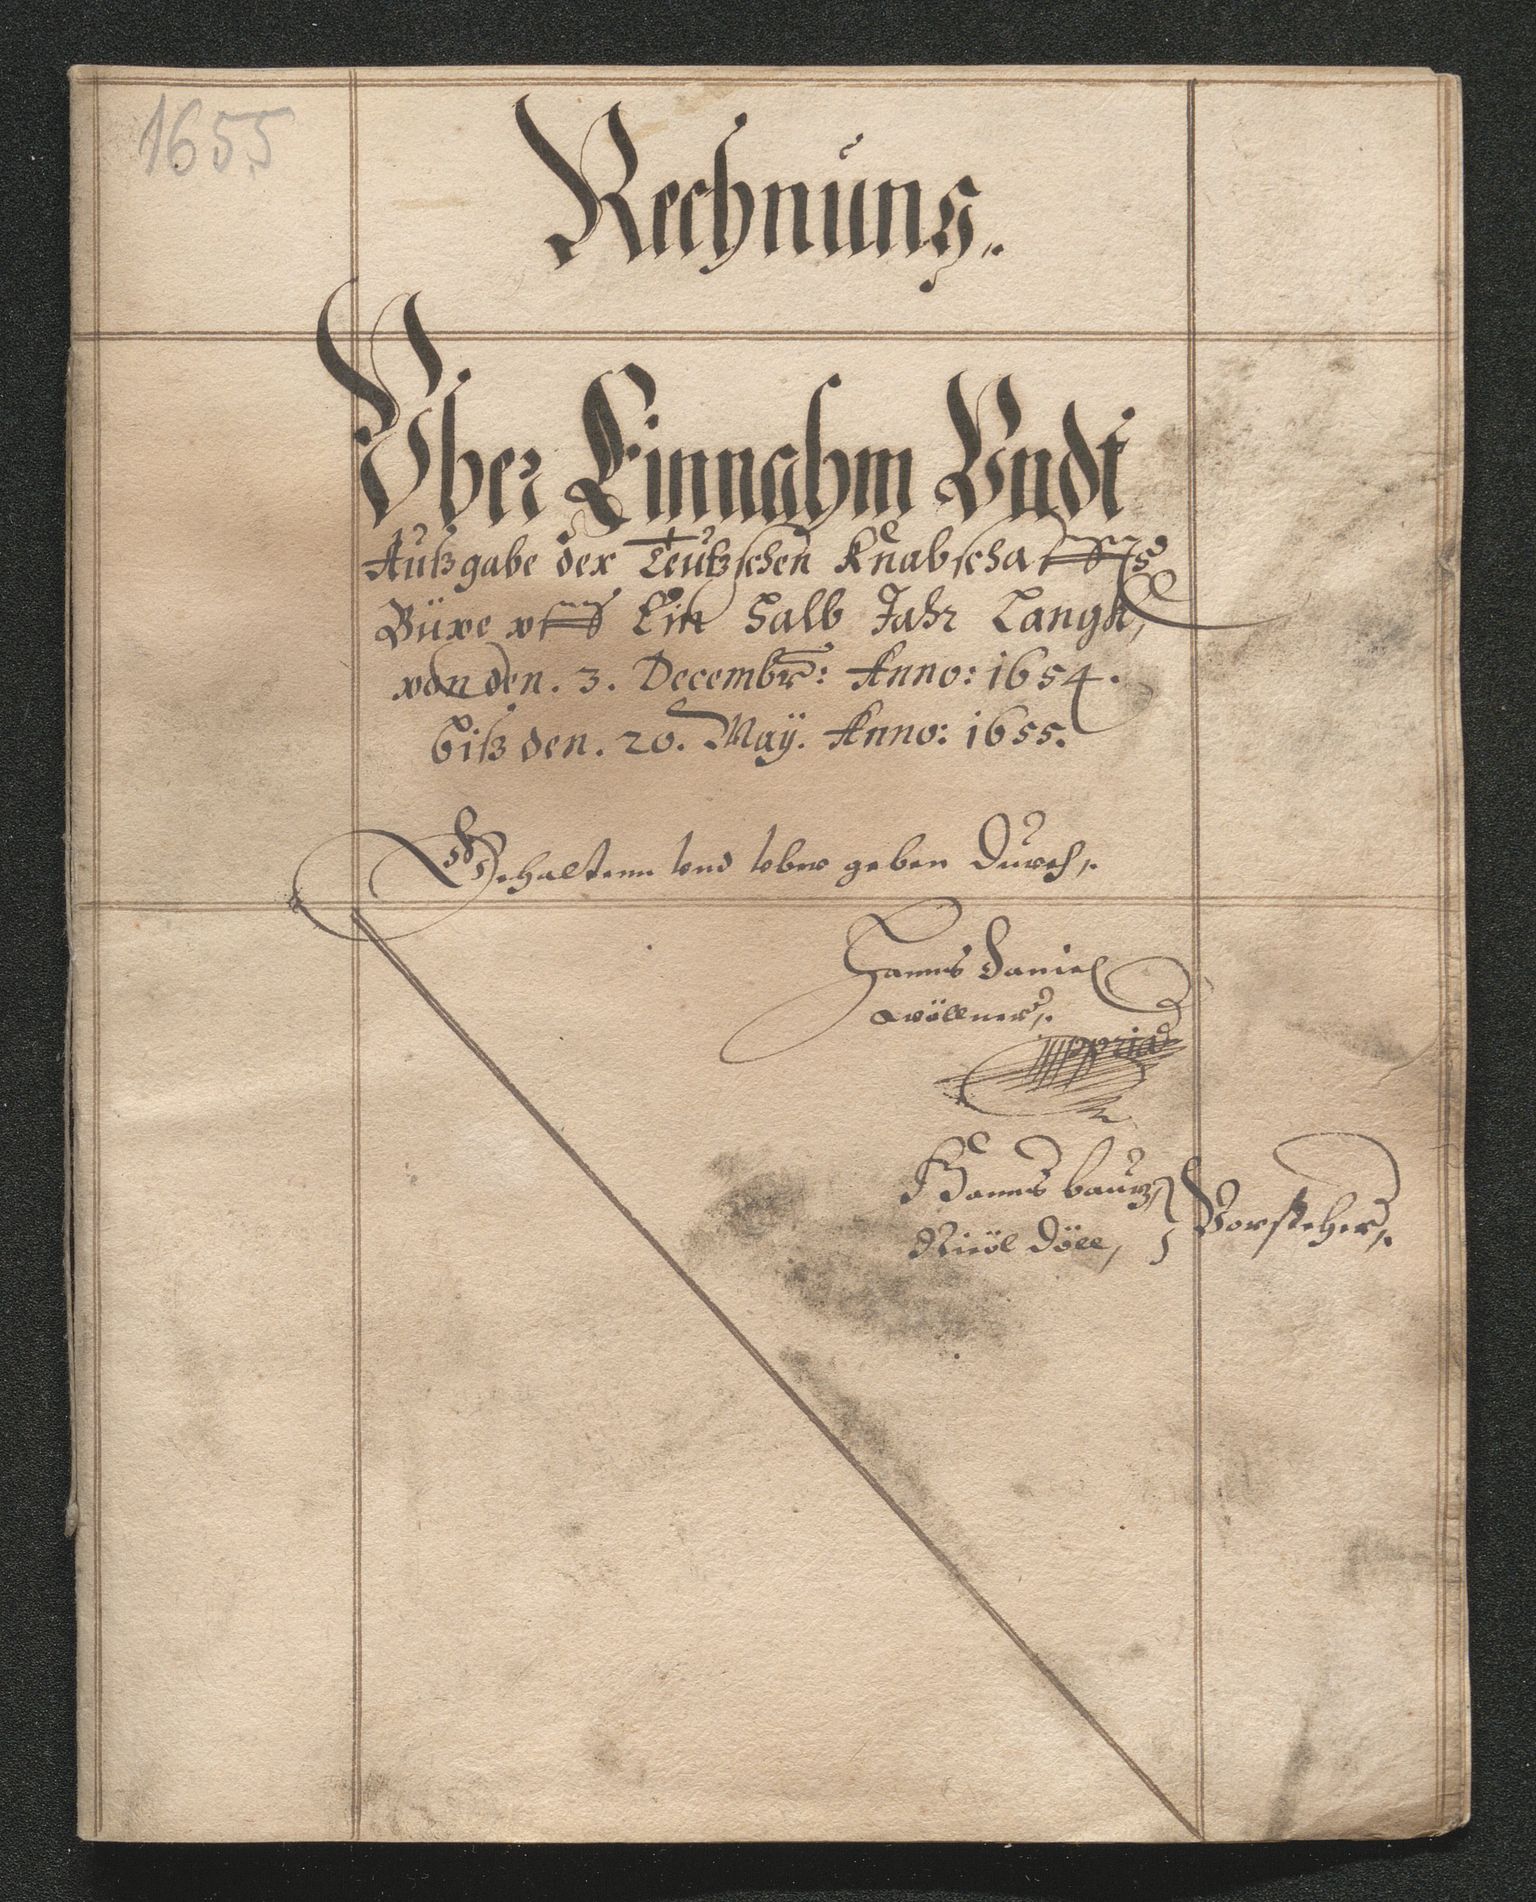 1655
Rechnüng.
Vber Einnahm Vndt
Außgabe der Teützschen Knabschaffts
Büxe vff Ein Halb Jahr Langk,
von den . 3 . Decembr: Anno: 1654.
biß den . 20. Maÿ. Anno: 1655.
Gehaltenn vnd vber geben Durch,.
Hanns Daniel
wöllner,.
mppria
Hanns baur,
Nicol Döll, } Vorsteher,.